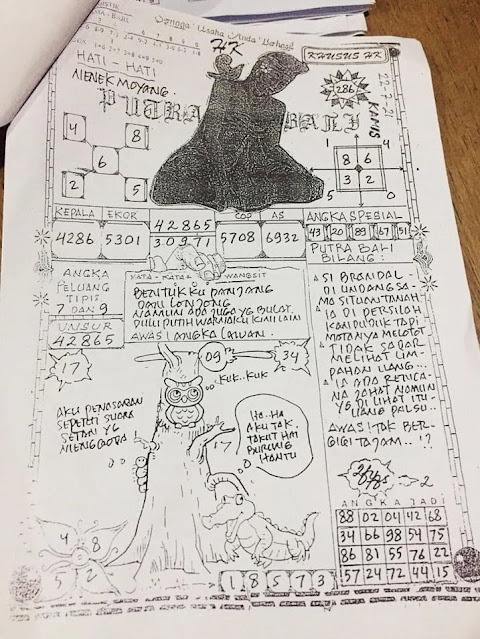 Semoga Usaha Anda Berhasil
HK
KHUSUS HK
HATI - HATI
NENEK MOYANG
PUTRA BALI
286
22-7-21
KAMIS
4 8
6
2 5
1 4
8 6
3 2
5 0
KEPALA EKOR
4286 5301
42865
30971
COP AS
5708 6932
ANGKA SPESIAL
43 20 89 67 51
ANGKA
PELUANG
TIPIS
7 DAN 9
UNSUR
42865
KATA - KATA WANGSIT
BENTUK KU PANJANG
DAN LONJONG
NAMUN ADA JUGA YG BULAT.
DULU PUTIH WARNAKU KINI LAIN
AWAS! ANGKA LAWAN.
PUTRA BALI
BILANG:
SI BRANDAL -
DI UNDANG SA-
MA SI TUAN TANAH
IA DI PERSILAH
KAN DUDUK TAPI
MATANYA MELOTOT
TIDAK SADAR
MELIHAT LIM-
PAHAN UANG..
IA ADA RENCA-
NA JAHAT NAMUN
YG DI LIHAT ITU-
UANG PALSU..
AWAS! TAK BER-
GIGI TAJAM..!?
17
09
34
KUK..KUK
AKU PENASARAN
SEPERTI SUARA
SETAN YG
MENGGODA
HA..HA
AKU TAK
TAKUT HAI
BURUNG
HANTU
17
2
ANGKA JADI
88 02 04 42 68
34 66 98 54 75
86 81 55 76 22
57 24 72 44 15
4 8
5 2
1 8 5 7 3